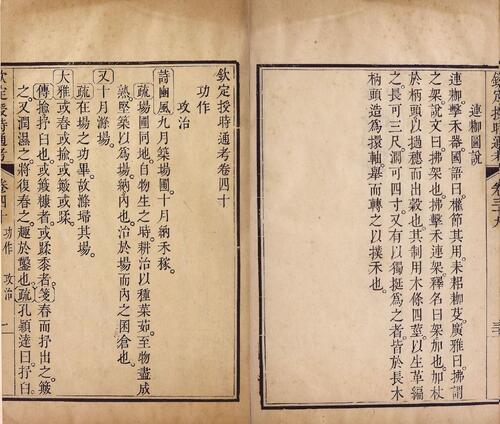 連枷圖說
連枷擊禾器國語曰權節其用耒耜枷芟廣雅曰拂謂
之架說文曰拂架也拂擊禾連架釋名曰架加也加杖
於柄頭以撾穗而出穀也其制用木條四莖以生革編
之長可三尺濶可四寸又有以獨挺爲之者皆於長木
柄頭造爲擐軸舉而轉之以撲禾也
欽定授時通考卷四十
功作
攻治
詩豳風九月築場圃十月納禾稼
疏場圃同地自物生之時耕治以種菜茹至物盡成
熟堅築以爲場納內也治於場而內之囷倉也
又十月滌場
疏在場之功畢故滌埽其場
大雅或舂或揄或簸或蹂
傳揄抒臼也或簸糠者或蹂黍者箋舂而抒出之簸
之又潤濕之將復舂之趣於鑿也疏孔穎達曰抒臼
欽定授時通考
卷四十
功作 攻治
一